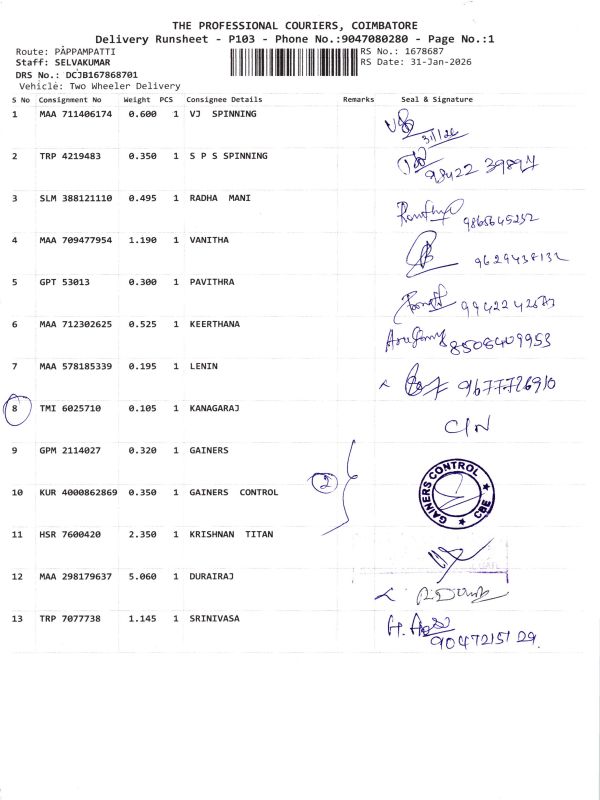 THE PROFESSIONAL COURIERS, COIMBATORE
Delivery Runsheet - P103 - Phone No.:9047080280 - Page No.:1
Route: PAPPAMPATTI
RS No.: 1678687
Staff: SELVAKUMAR
RS Date: 31-Jan-2026
DRS No.: DCJB167868701
Vehicle: Two Wheeler Delivery
S No Consignment No Weight PCS Consignee Details Remarks Seal & Signature
1 MAA 711406174 0.600 1 VJ SPINNING
31/1/26
2 TRP 4219483 0.350 1 S P S SPINNING
98422 39897
3 SLM 388121110 0.495 1 RADHA MANI
9865645232
4 MAA 709477954 1.190 1 VANITHA
9629438132
5 GPT 53013 0.300 1 PAVITHRA
6 MAA 712302625 0.525 1 KEERTHANA
8508409953
7 MAA 578185339 0.195 1 LENIN
9677726910
8 TMI 6025710 0.105 1 KANAGARAJ
C/N
9 GPM 2114027 0.320 1 GAINERS
2
GAINERS CONTROL
CBE
10 KUR 4000862869 0.350 1 GAINERS CONTROL
11 HSR 7600420 2.350 1 KRISHNAN TITAN
12 MAA 298179637 5.060 1 DURAIRAJ
13 TRP 7077738 1.145 1 SRINIVASA
9047215129